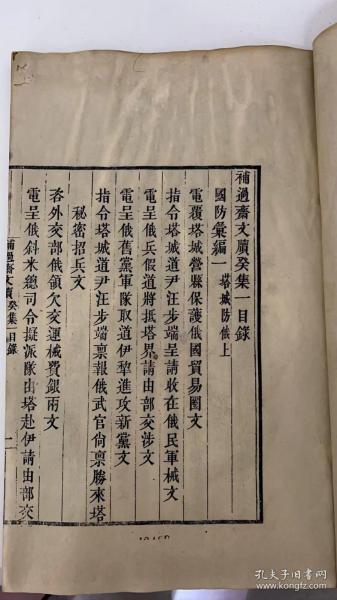 補過齋文牘癸集一目錄
國防彙編一 塔城防俄上
電覆塔城營縣保護俄國貿易圈文
指令塔城道尹汪步端呈請收在俄民軍械文
電呈俄兵假道將抵塔界請由部交涉文
電呈俄舊黨軍隊取道伊犂進攻新黨文
指令塔城道尹汪步端禀報俄武官尙禀勝來塔
秘密招兵文
咨外交部俄領欠交運械費銀兩文
電呈俄斜米總司令擬派隊由塔赴伊請由部交
補過齋文牘癸集一目錄
二
孔夫子旧书网
kongfz.com